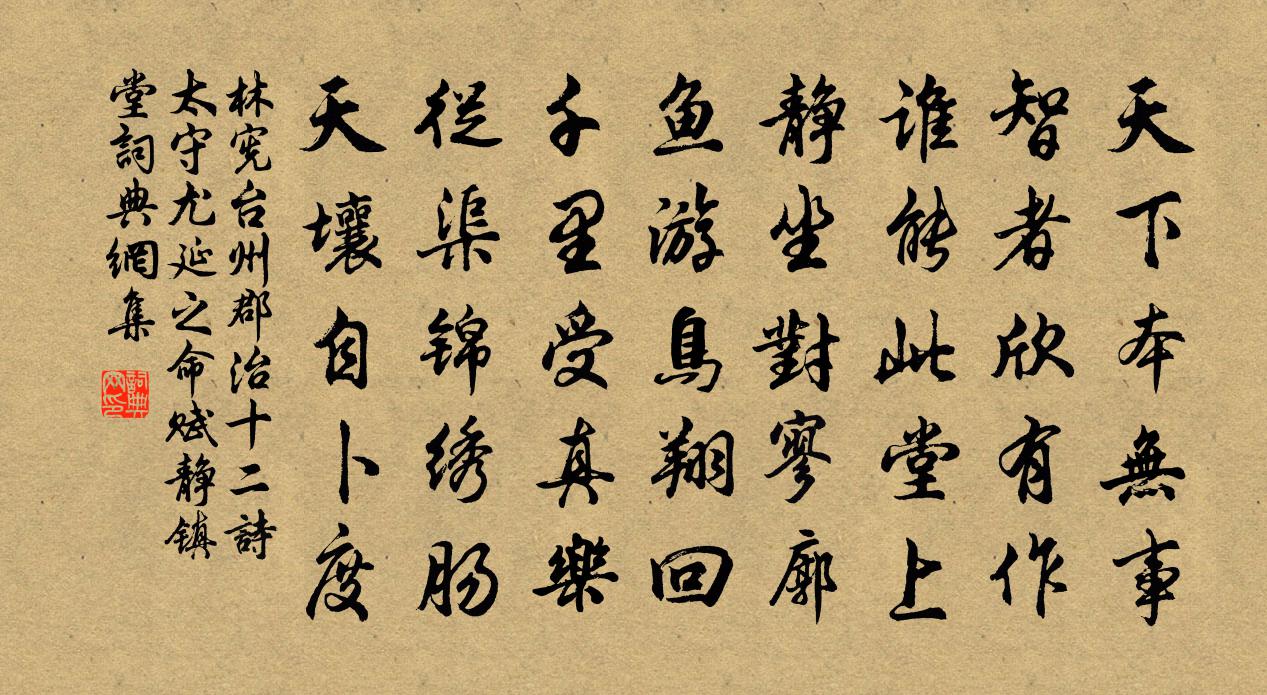 天下本無事
智者欣有作
谁能此堂上
静坐對寥廓
鱼游鳥翔回
千里受真樂
従渠锦绣肠
天壤自卜度
林宪台州郡治十二詩
太守尤延之命赋静镇
堂詞典網集
詞典网印